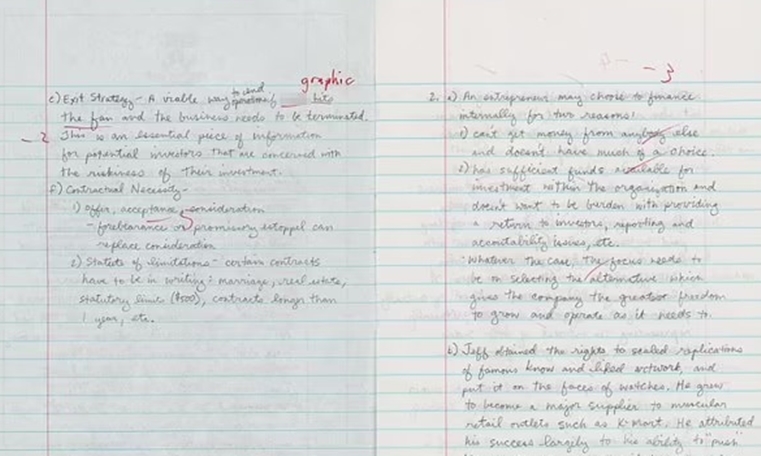 graphic
e) Exit Strategy - A viable way to end operations if hits
the fan and the business needs to be terminated.
-2 This is an essential piece of information
for potential investors that are concerned with
the riskiness of their investment.
f) Contractual Necessity -
1) offer, acceptance, consideration
- forebearance or promissory estoppel can
replace consideration
2) Statets of limitations - certain contracts
have to be in writing: marriage, real estate,
statutory limits ($500), contracts longer than
1 year, etc.
-3
2. a) An entrepreneur may choose to finance
internally for two reasons:
1) can't get money from anybody else
and doesn't have much of a choice.
2) has sufficient funds available for
investment within the organization and
doesn't want to be burden with providing
a return to investors, reporting and
accountability issues, etc.
Whatever the case, the focus needs to
be on selecting the alternative which
gives the company the greatest freedom
to grow and operate as it needs to.
b) Jeff obtained the rights to scaled replications
of famous know and liked artwork, and
put it on the faces of watches. He grew
to become a major supplier to
retail outlets such as K-Mart. He attributed
his success largely to his ability to "push"